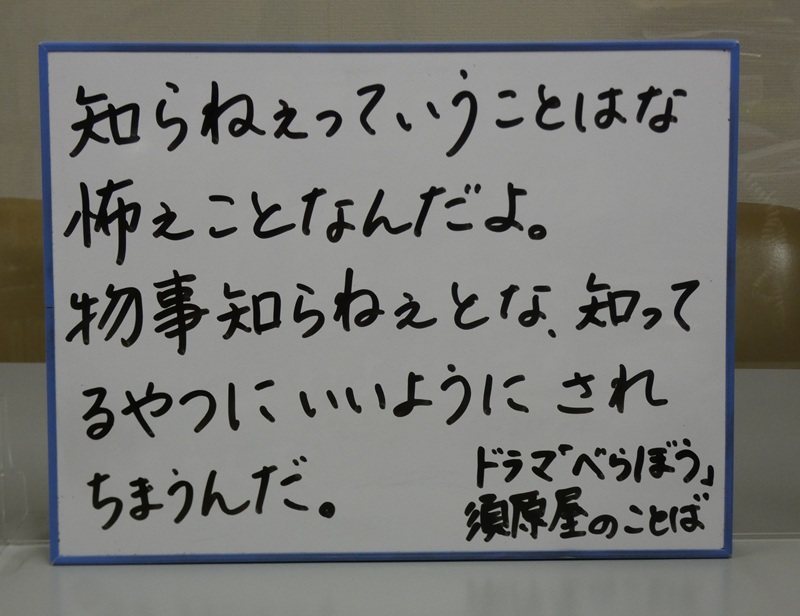 知らねぇっていうことはな
怖ぇことなんだよ。
物事知らねぇとな、知って
るやつにいいようにされ
ちまうんだ。
ドラマ「べらぼう」
須原屋のことば